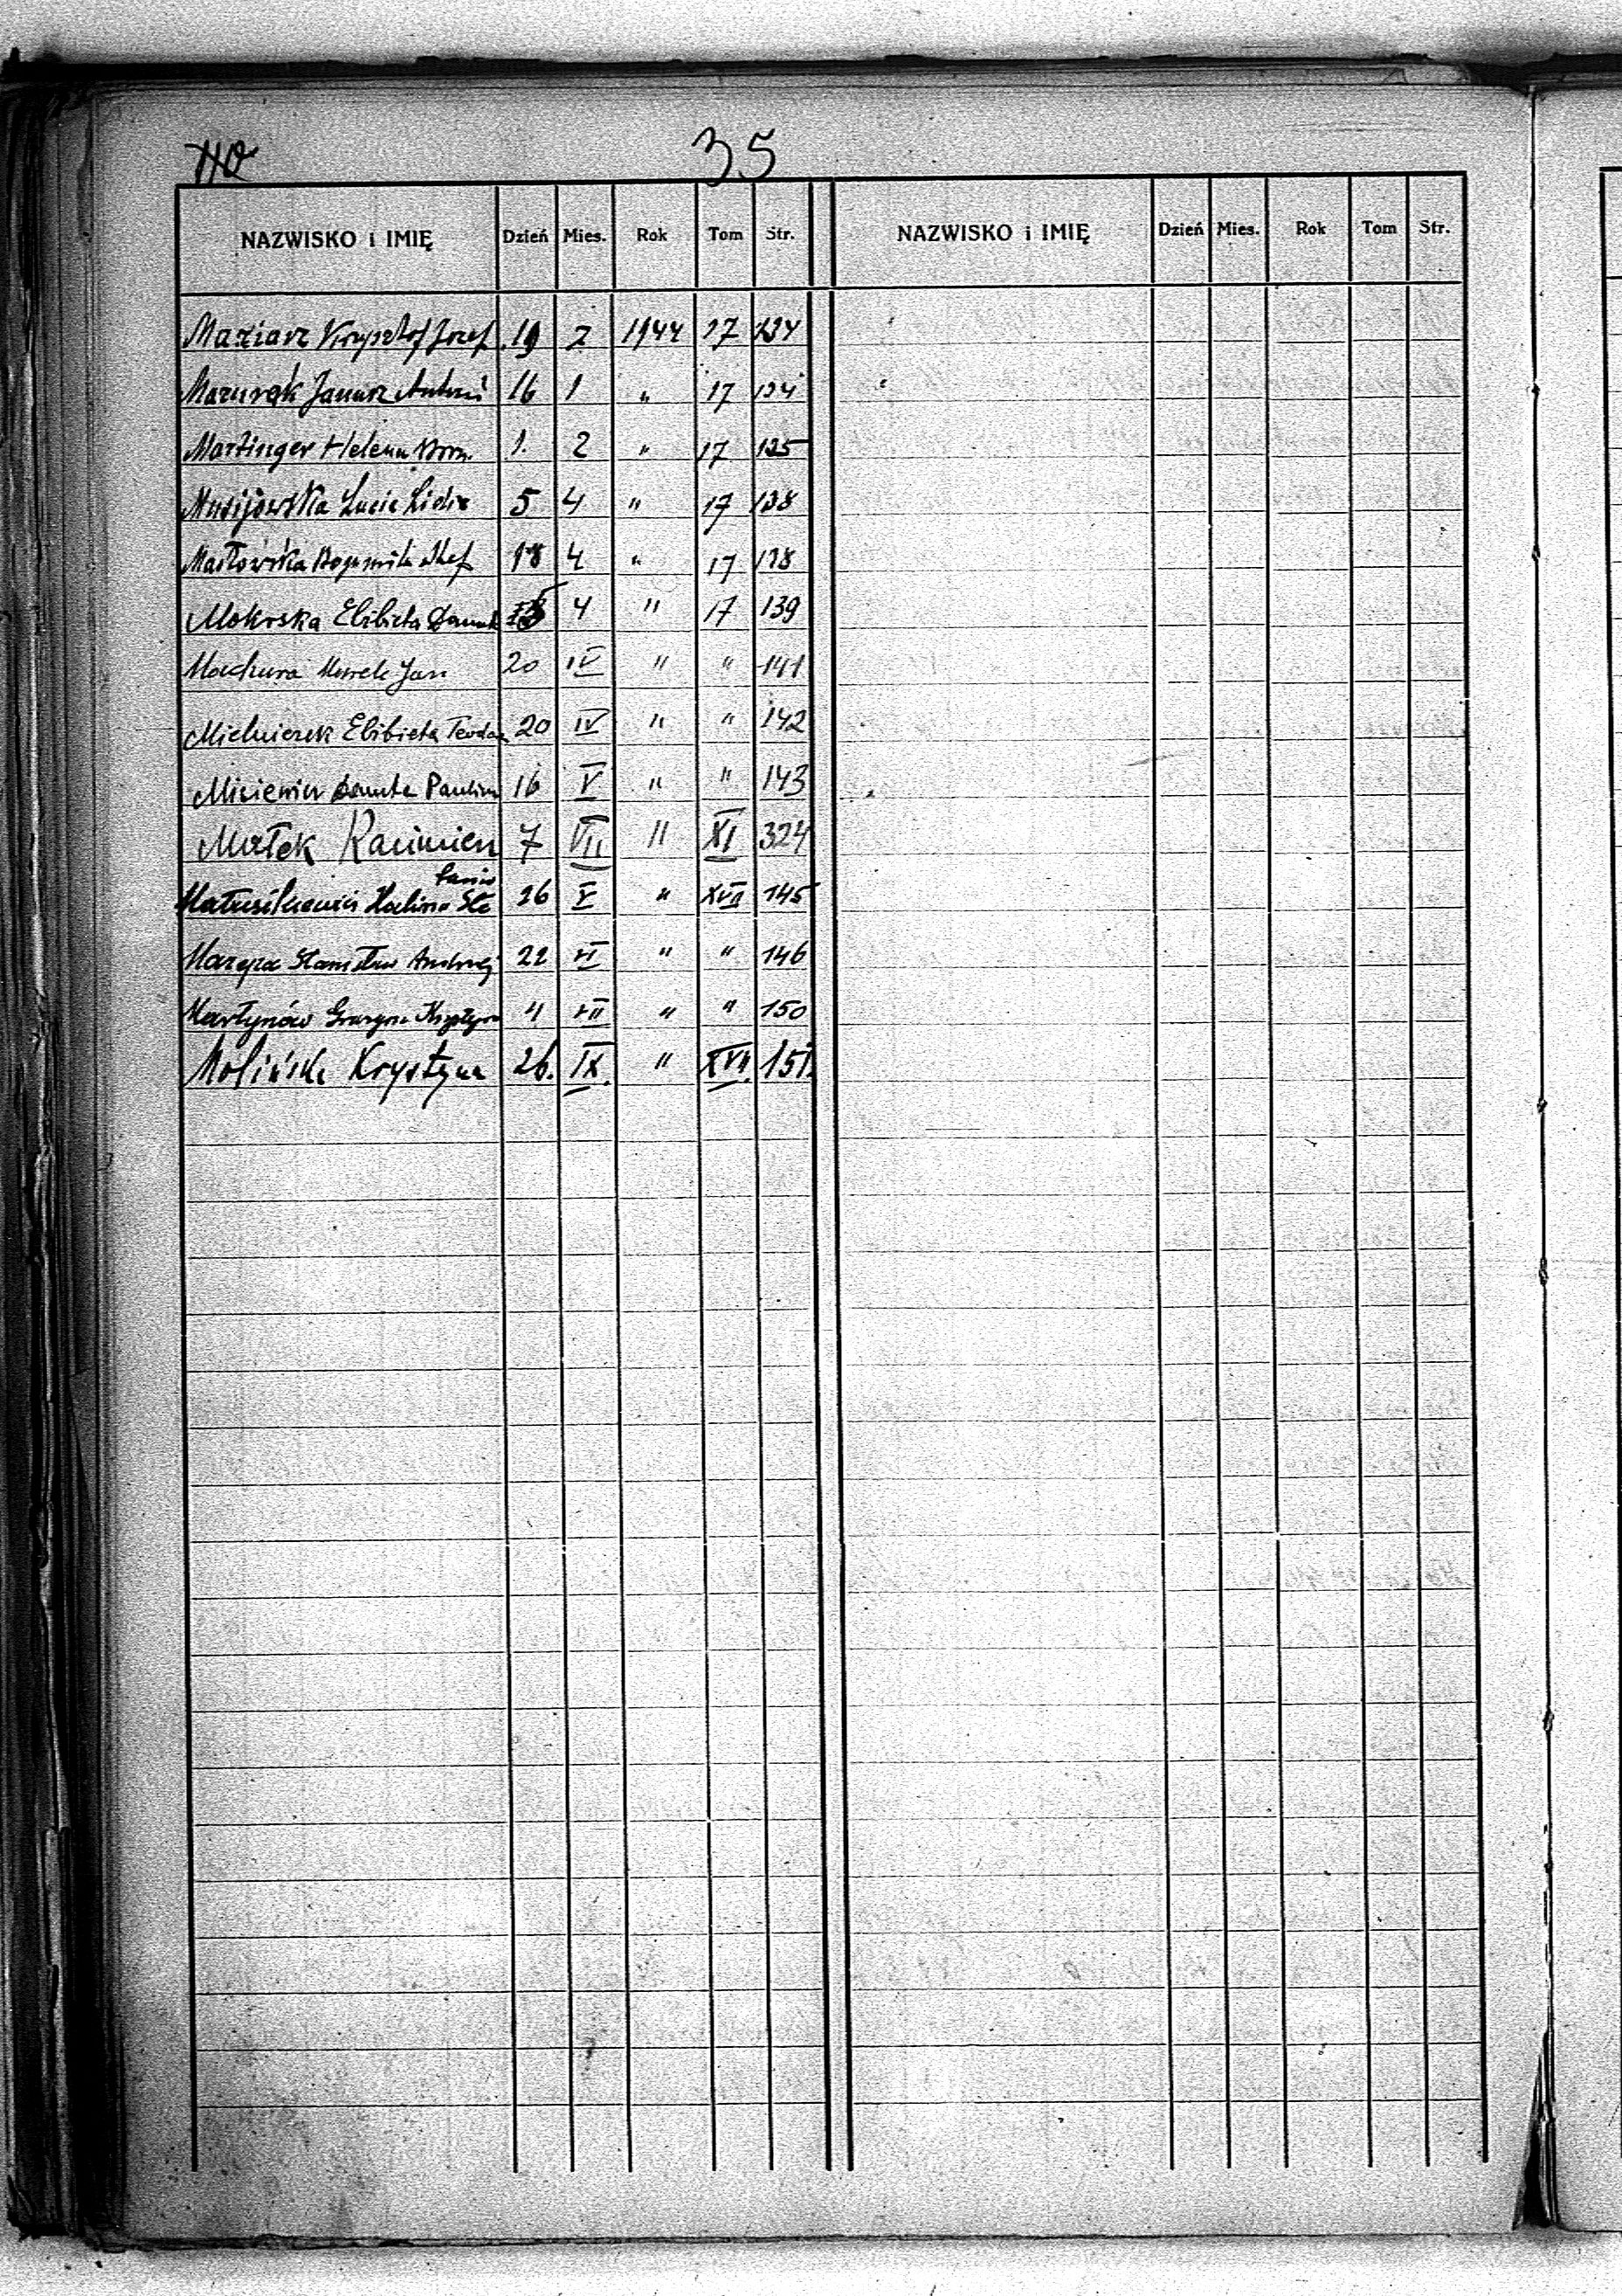 35
NAZWISKO i IMIĘ Dzień Mies. Rok Tom Str. NAZWISKO i IMIĘ Dzień Mies. Rok Tom Str.
Maziarz Krysztof Jozef 19 2 1944 17 134
Mazurek Janusz Antoni 16 1 " 17 134
Martinger Helena 1. 2 " 17 135
Lucie Lidia 5 4 " 17 138
Masłowska Bogumiła Stef 18 4 " 17 138
Mokrska Elżbieta Danuta 4 " 17 139
Machura Marek Jan 20 IV " " 141
Mielniczek Elżbieta Teodoz 20 IV " " 142
Danuta Paulina 16 V " " 143
Małek Kazimierz 7 VII " XI 324
Matusikiewicz Halina Ste 26 V " XVII 145
Stanisław Andrzej 22 VI " " 146
Martynów Grażyna Krystyna 4 VII " " 150
Molińska Krystyna 26. IX. " XVII. 151.